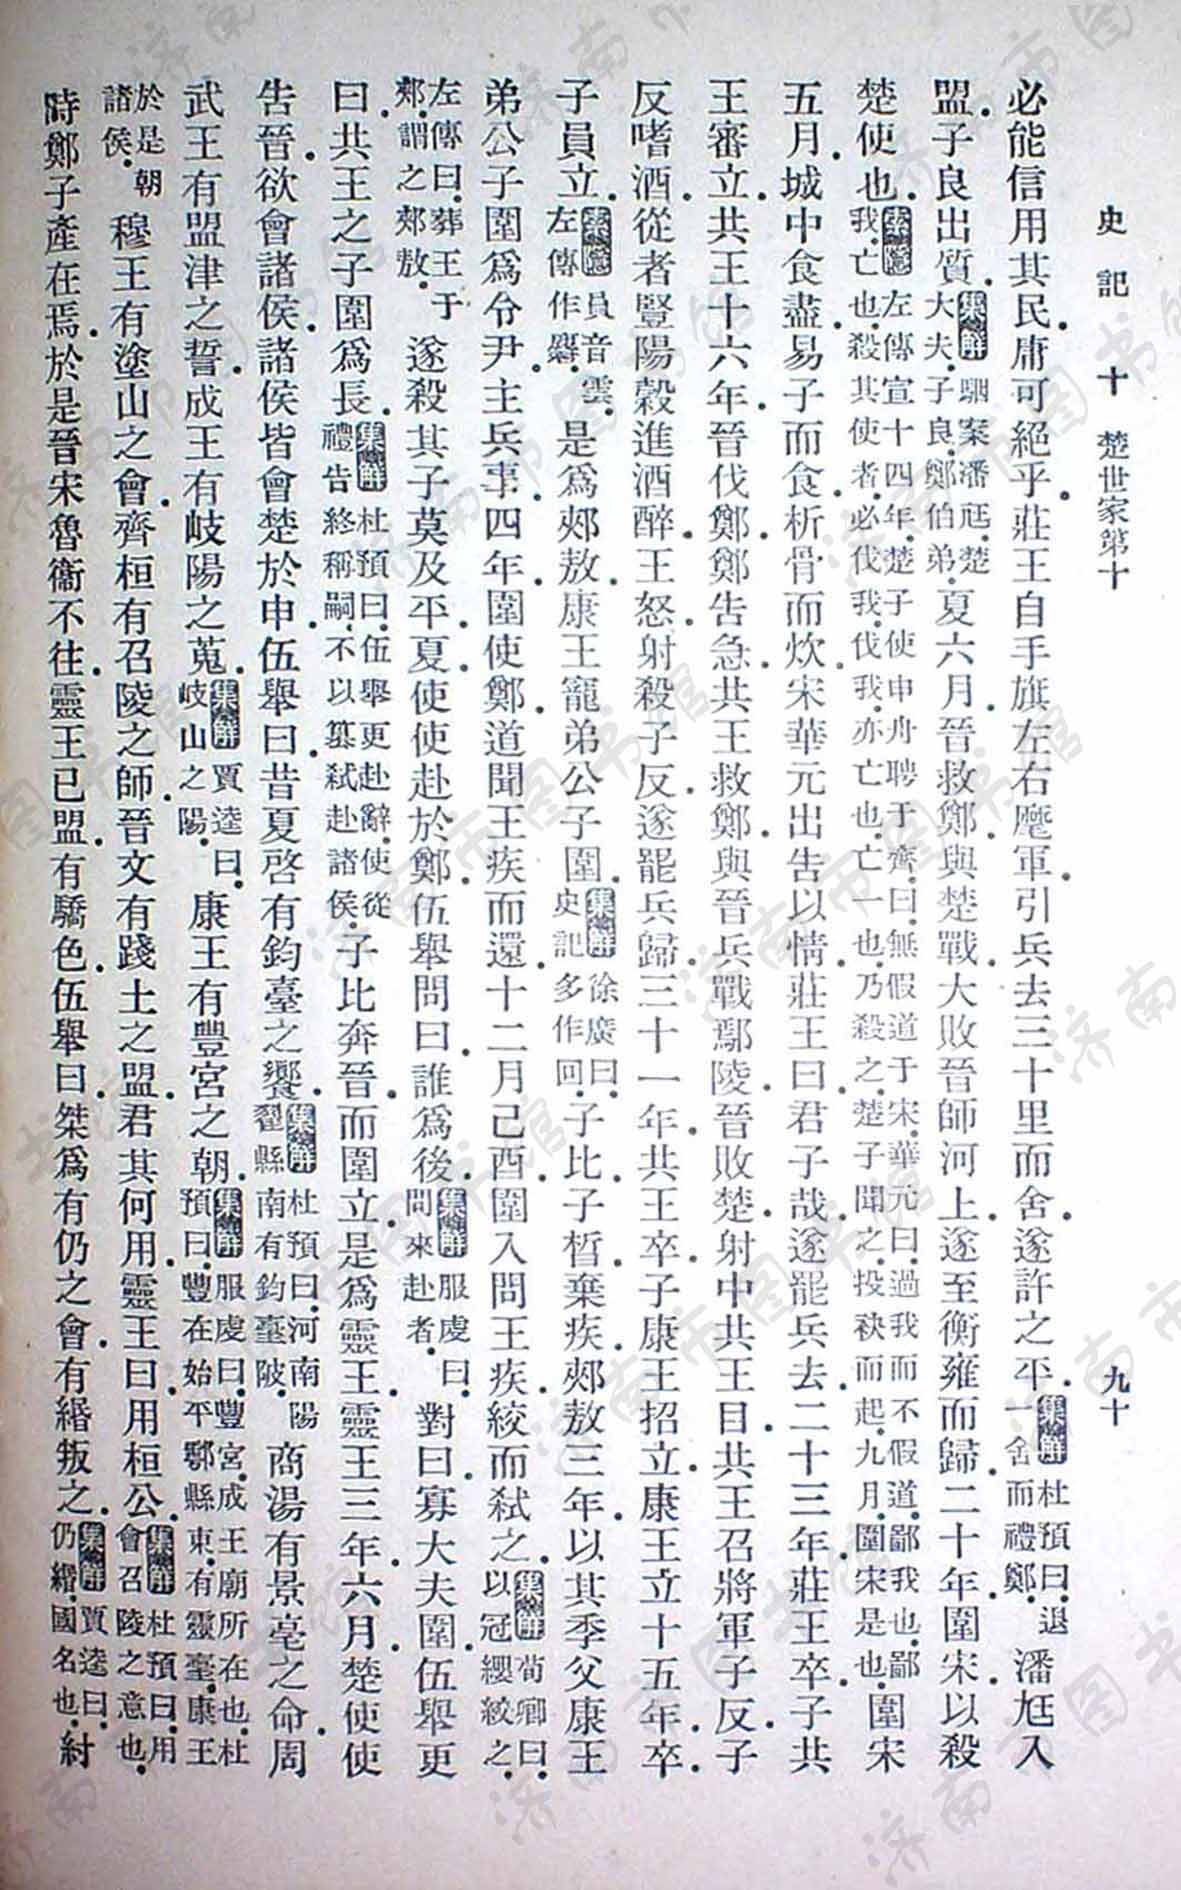 史記十 楚世家第十 九十
必能信用其民.庸可絕乎.莊王自手旗左右麾軍.引兵去三十里而舍.遂許之平.集解杜預曰.退一舍而禮鄭.潘尫入
盟.子良出質.集解駰案潘尫楚大夫.子良鄭伯弟.夏六月.晉救鄭.與楚戰.大敗晉師河上.遂至衡雍而歸.二十年.圍宋.以殺
楚使也.索隱左傳宣十四年.楚子使申舟聘于齊.曰無假道于宋.華元曰.過我而不假道.鄙我也.鄙我.亡也.殺其使者.必伐我.伐我亦亡也.亡一也.乃殺之.楚子聞之.投袂而起.九月.圍宋是也.圍宋
五月.城中食盡.易子而食.析骨而炊.宋華元出告以情.莊王曰.君子哉.遂罷兵去.二十三年.莊王卒.子共
王審立.共王十六年.晉伐鄭.鄭告急.共王救鄭.與晉兵戰鄢陵.晉敗楚.射中共王目.共王召將軍子反.子
反嗜酒.從者豎陽穀進酒醉.王怒.射殺子反.遂罷兵歸.三十一年.共王卒.子康王招立.康王立十五年.卒.
子員立.索隱員音雲.左傳作麏.是爲郟敖.康王寵弟公子圍.集解徐廣曰.史記多作回.子比.子晳.棄疾.郟敖三年.以其季父康王
弟公子圍爲令尹.主兵事.四年.圍使鄭.道聞王疾而還.十二月己酉.圍入問王疾.絞而弒之.集解荀卿曰.以冠纓絞之.
左傳曰.葬王于郟.謂之郟敖.遂殺其子莫及平夏.使使赴於鄭.伍舉問曰.誰爲後.集解服虔曰.問來赴者.對曰.寡大夫圍.伍舉更
曰.共王之子圍爲長.集解杜預曰.伍舉更赴辭.使從禮告終稱嗣.不以篡弒赴諸侯.子比奔晉.而圍立.是爲靈王.靈王三年.六月.楚使使
告晉.欲會諸侯.諸侯皆會楚於申.伍舉曰.昔夏啓有鈞臺之饗.集解杜預曰.河南陽翟縣南有鈞臺陂.商湯有景亳之命.周
武王有盟津之誓.成王有岐陽之蒐.集解賈逵曰.岐山之陽.康王有豐宮之朝.集解服虔曰.豐宮.成王廟所在也.杜預曰.豐在始平鄠縣東.有靈臺.康王
於是朝諸侯.穆王有塗山之會.齊桓有召陵之師.晉文有踐土之盟.君其何用.靈王曰.用桓公.集解杜預曰.用會召陵之意也.
時鄭子產在焉.於是晉宋魯衞不往.靈王已盟.有驕色.伍舉曰.桀爲有仍之會.有緡叛之.集解賈逵曰.仍緡.國名也.紂